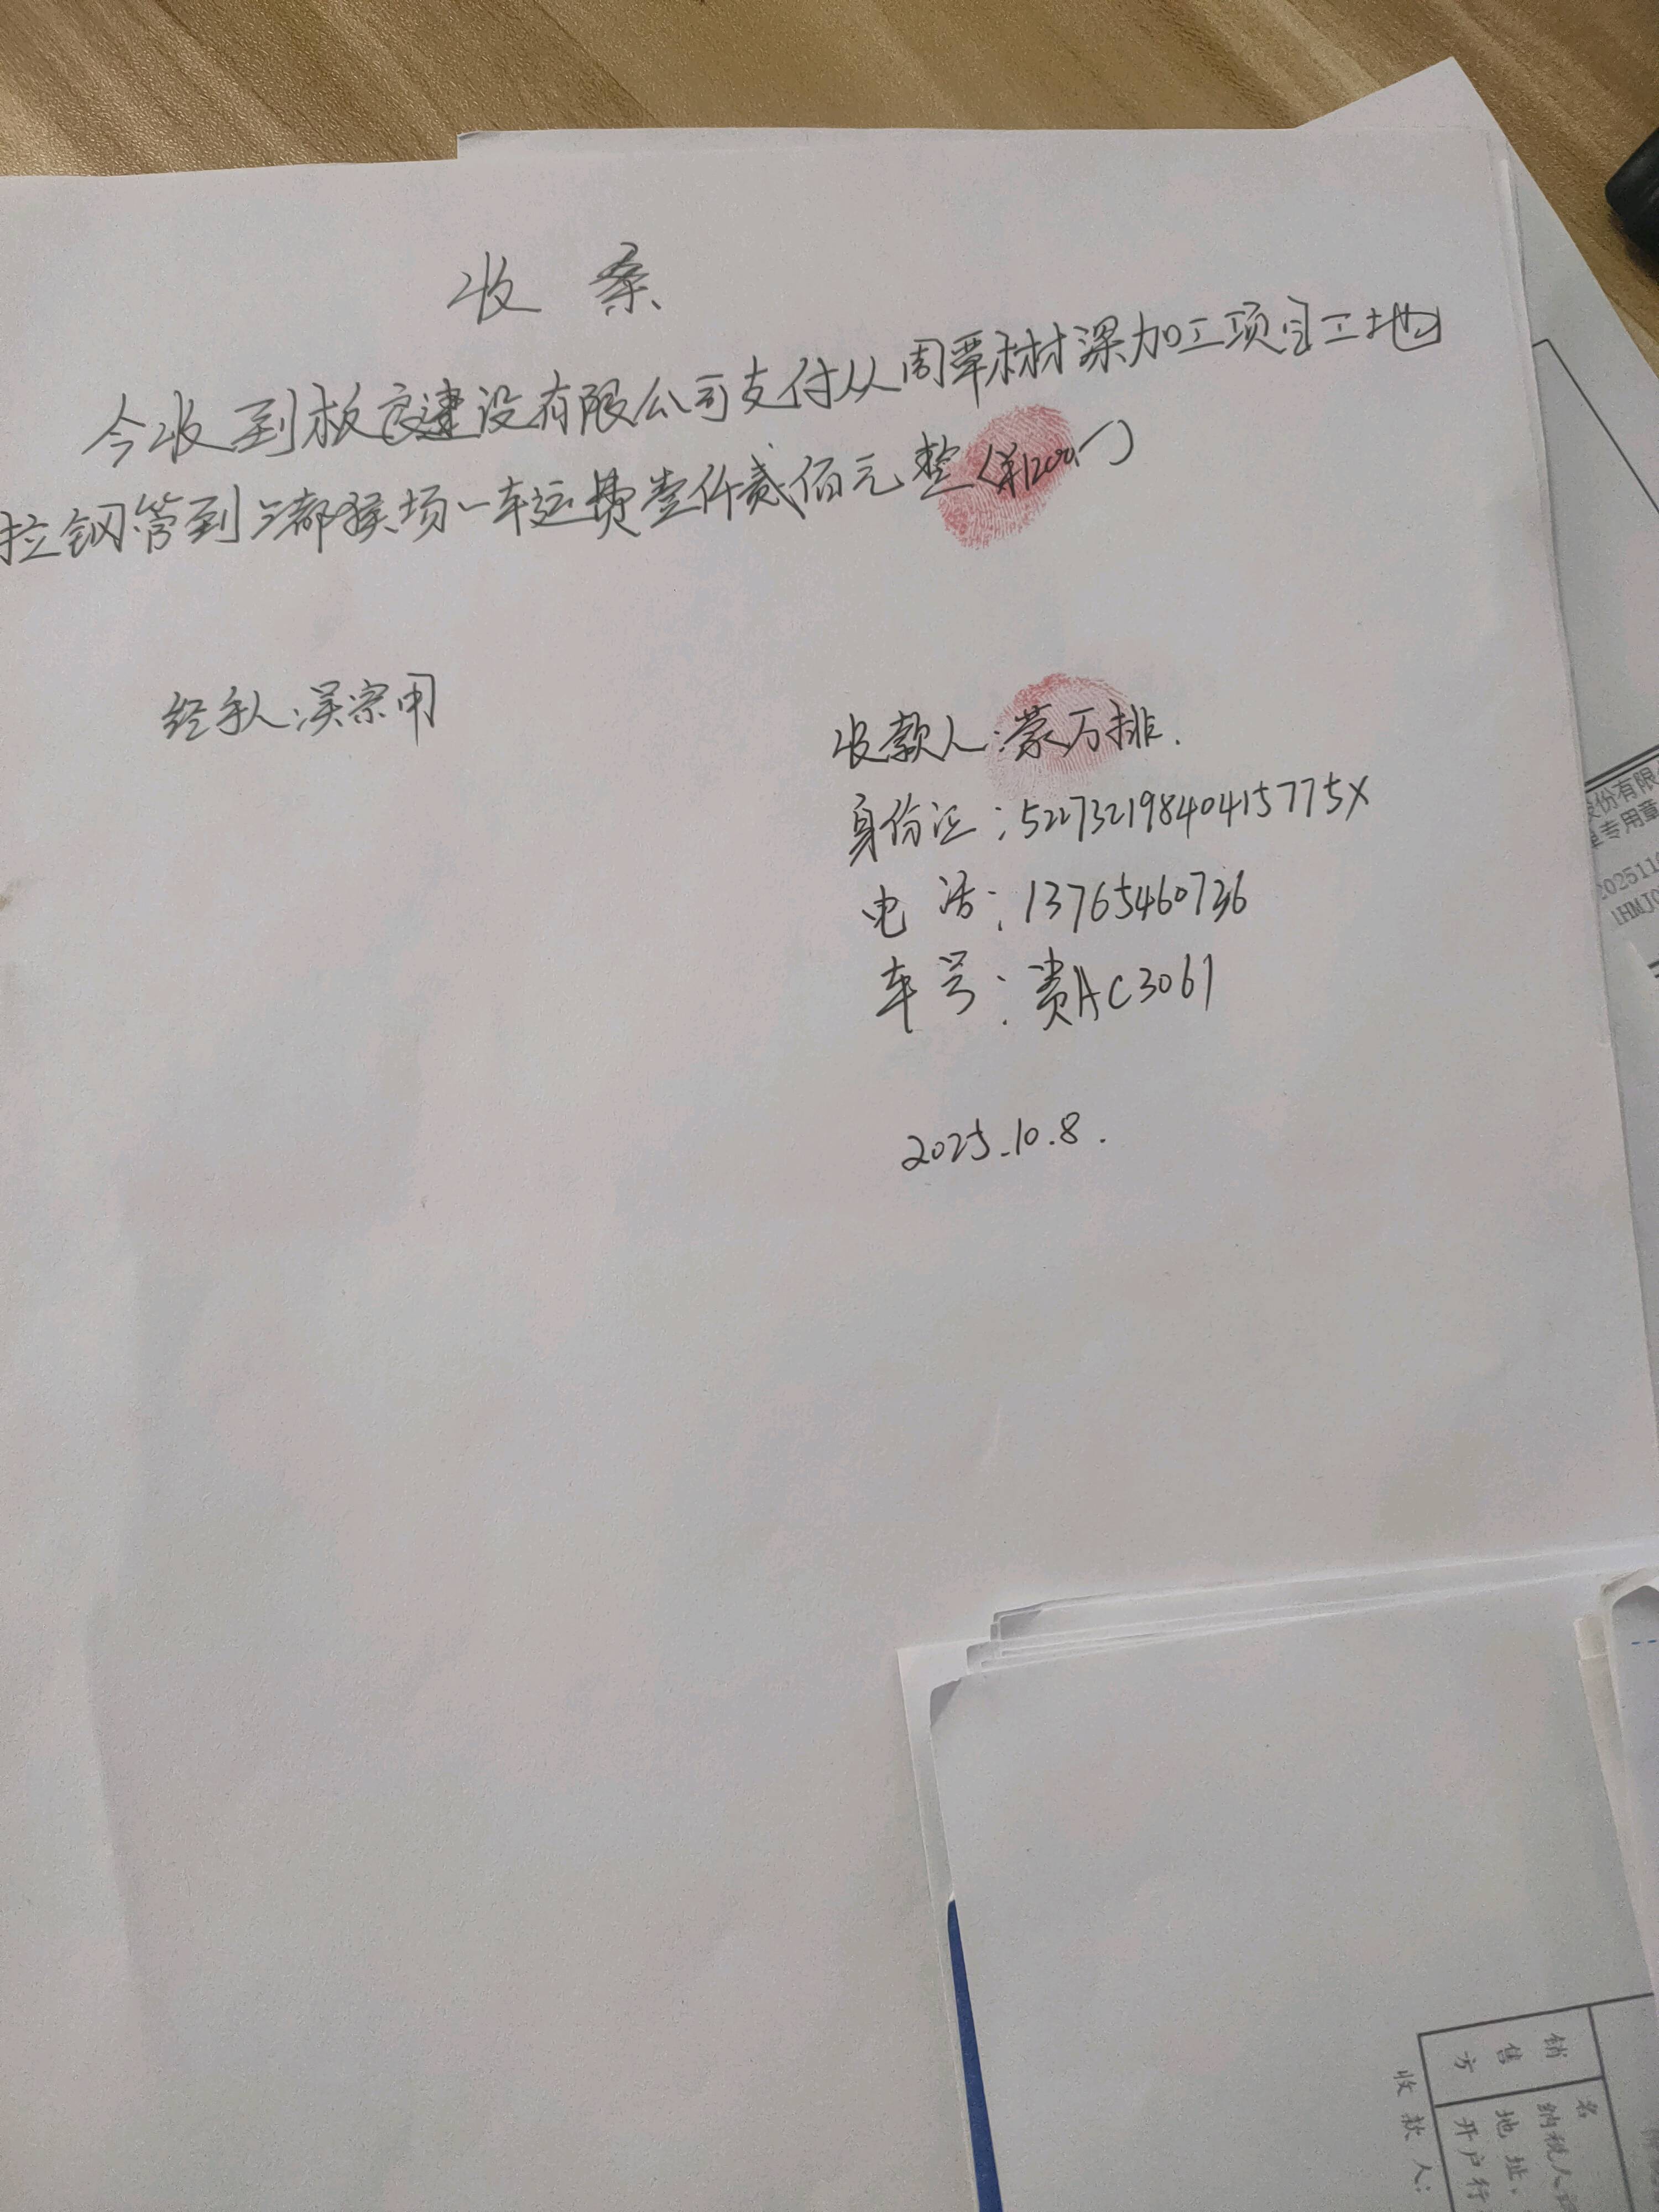 收 条
今收到板良建设有限公司支付从周覃林材深加工项目工地
拉钢管到三都猴场一车运费壹仟贰佰元整(¥1200)
经手人:吴宗用
收款人:蒙万排.
身份证:52273219840415775X
电 话:13765460736
车 号:贵AC3061
2025.10.8.
份有限
专用章
202511
销售方
名
纳税人
地址、
开户行
收款人: